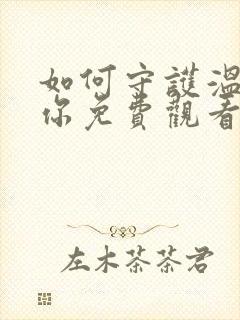 如何守護溫
你免費觀看
左木茶茶君